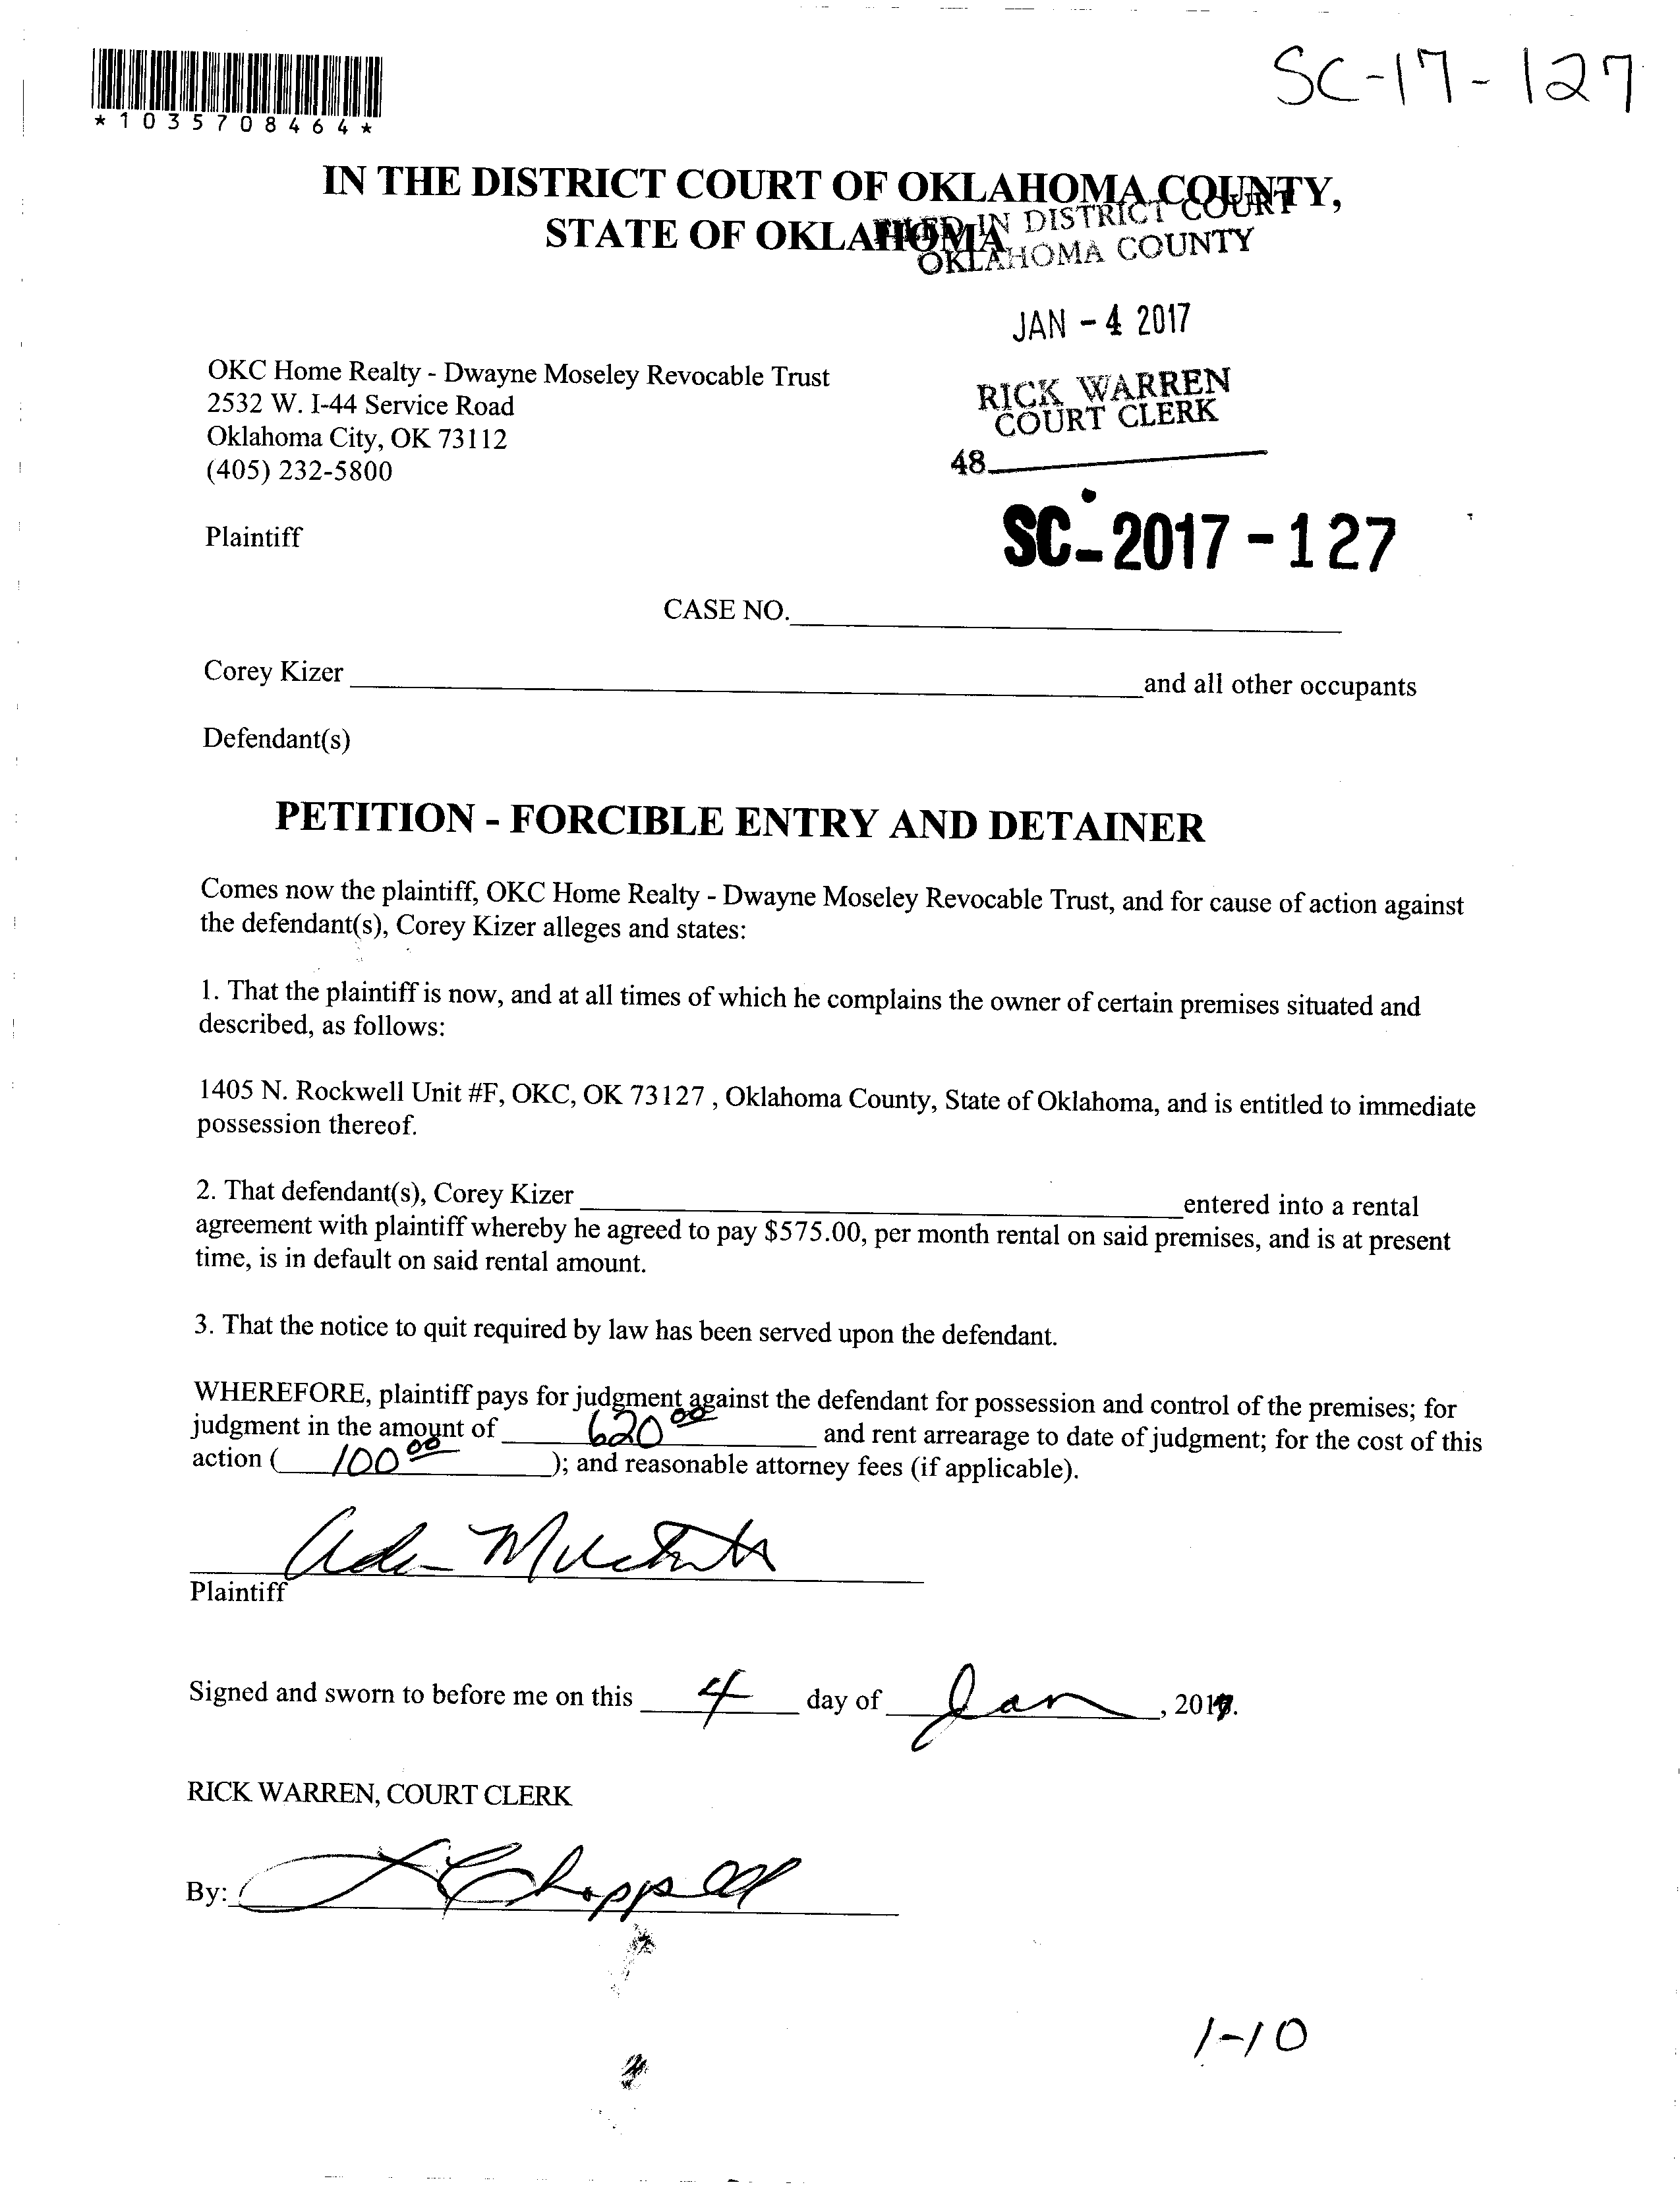 SC-17-127
*1035708464*
IN THE DISTRICT COURT OF OKLAHOMA COUNTY,
STATE OF OKLAHOMA
FILED IN DISTRICT COURT
OKLAHOMA COUNTY
JAN - 4 2017
OKC Home Realty - Dwayne Moseley Revocable Trust
2532 W. I-44 Service Road
Oklahoma City, OK 73112
(405) 232-5800
RICK WARREN
COURT CLERK
48
Plaintiff
SC-2017-127
CASE NO.
Corey Kizer and all other occupants
Defendant(s)
PETITION - FORCIBLE ENTRY AND DETAINER
Comes now the plaintiff, OKC Home Realty - Dwayne Moseley Revocable Trust, and for cause of action against
the defendant(s), Corey Kizer alleges and states:
1. That the plaintiff is now, and at all times of which he complains the owner of certain premises situated and
described, as follows:
1405 N. Rockwell Unit #F, OKC, OK 73127 , Oklahoma County, State of Oklahoma, and is entitled to immediate
possession thereof.
2. That defendant(s), Corey Kizer entered into a rental
agreement with plaintiff whereby he agreed to pay $575.00, per month rental on said premises, and is at present
time, is in default on said rental amount.
3. That the notice to quit required by law has been served upon the defendant.
WHEREFORE, plaintiff pays for judgment against the defendant for possession and control of the premises; for
judgment in the amount of 620 00 and rent arrearage to date of judgment; for the cost of this
action ( 100 00 ); and reasonable attorney fees (if applicable).
Plaintiff
Signed and sworn to before me on this 4 day of Jan, 2017.
RICK WARREN, COURT CLERK
By: Chappell
1-10